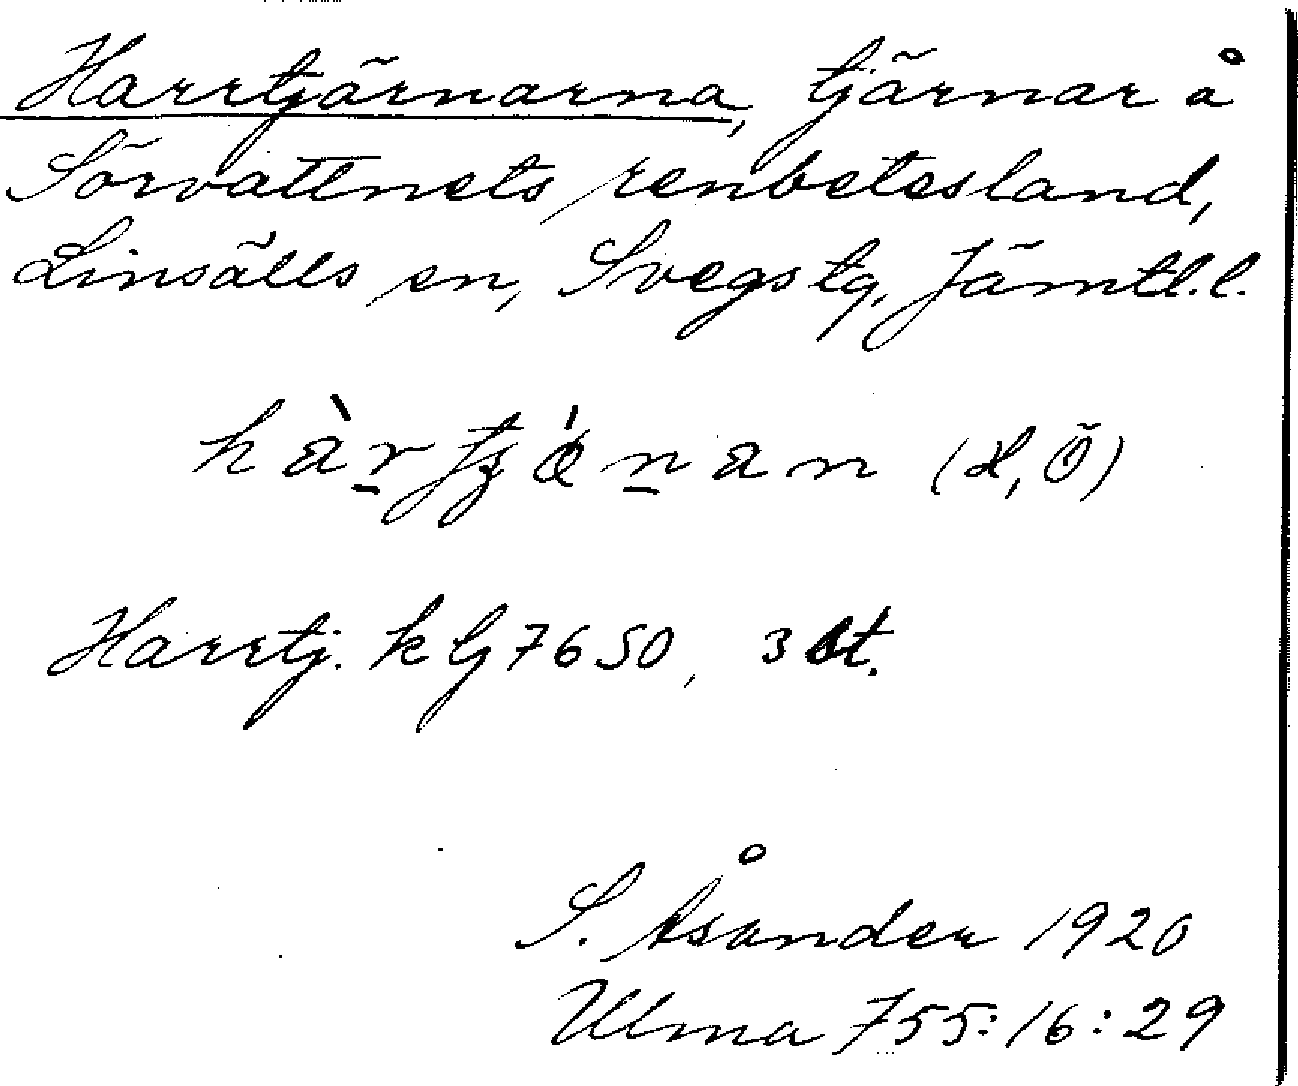 Harrtjärnarna, tjärnar å
Sörvattnets renbetesland,
Linsälls sn, Svegs tg, Jämtl. l.
(L, Ö)
Harrtj. kbj 7650, 3 st.
S. Åsander 1920
Ulma 755:16:29